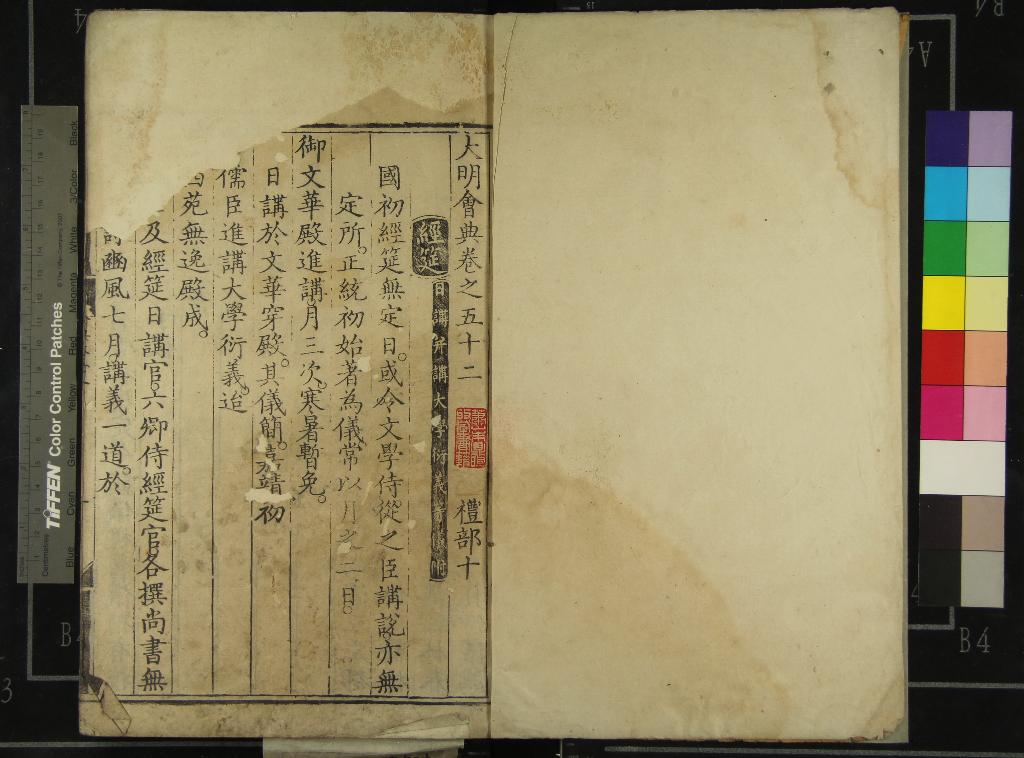 大明會典卷之五十二 禮部十
經筵 日講并講大學衍義
國初經筵無定日。或令文學侍從之臣講說亦無
定所。正統初始著為儀常以月之二日。
御文華殿進講。月三次。寒暑暫免。
日講於文華穿殿。其儀簡。嘉靖初
儒臣進講大學衍義。迨
西苑無逸殿成。
及經筵日講官。六卿侍經筵官各撰尚書無
豳風七月講義一道。於
TIFFEN Color Control Patches
Blue Cyan Green Yellow Red Magenta White 3/Color Black
Centimetres
B4